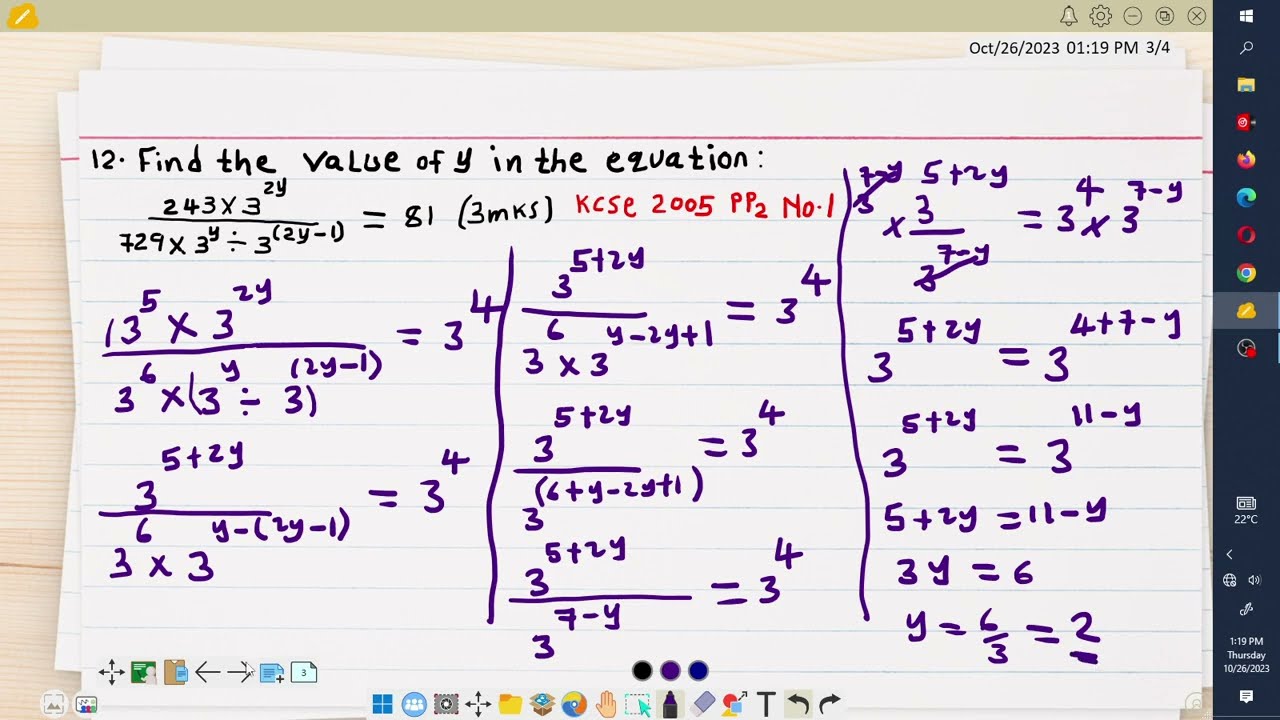 Oct/26/2023 01:19 PM 3/4
12. Find the value of y in the equation:
243 × 3^2y / 729 × 3^y ÷ 3^(2y-1) = 81 (3mks) KCSE 2005 PP2 No.1
(3^5 × 3^2y / 3^6 × (3^y ÷ 3^(2y-1)) = 3^4
3^5+2y / 3^6 × 3^y-(2y-1) = 3^4
3^5+2y / 3^6 × 3^y-2y+1 = 3^4
3^5+2y / 3^(6+y-2y+1) = 3^4
3^5+2y / 3^7-y = 3^4
3^7-y × 3^5+2y / 3^7-y = 3^4 × 3^7-y
3^5+2y = 3^4+7-y
3^5+2y = 3^11-y
5+2y = 11-y
3y = 6
y = 6/3 = 2
3
T
22°C
1:19 PM
Thursday
10/26/2023